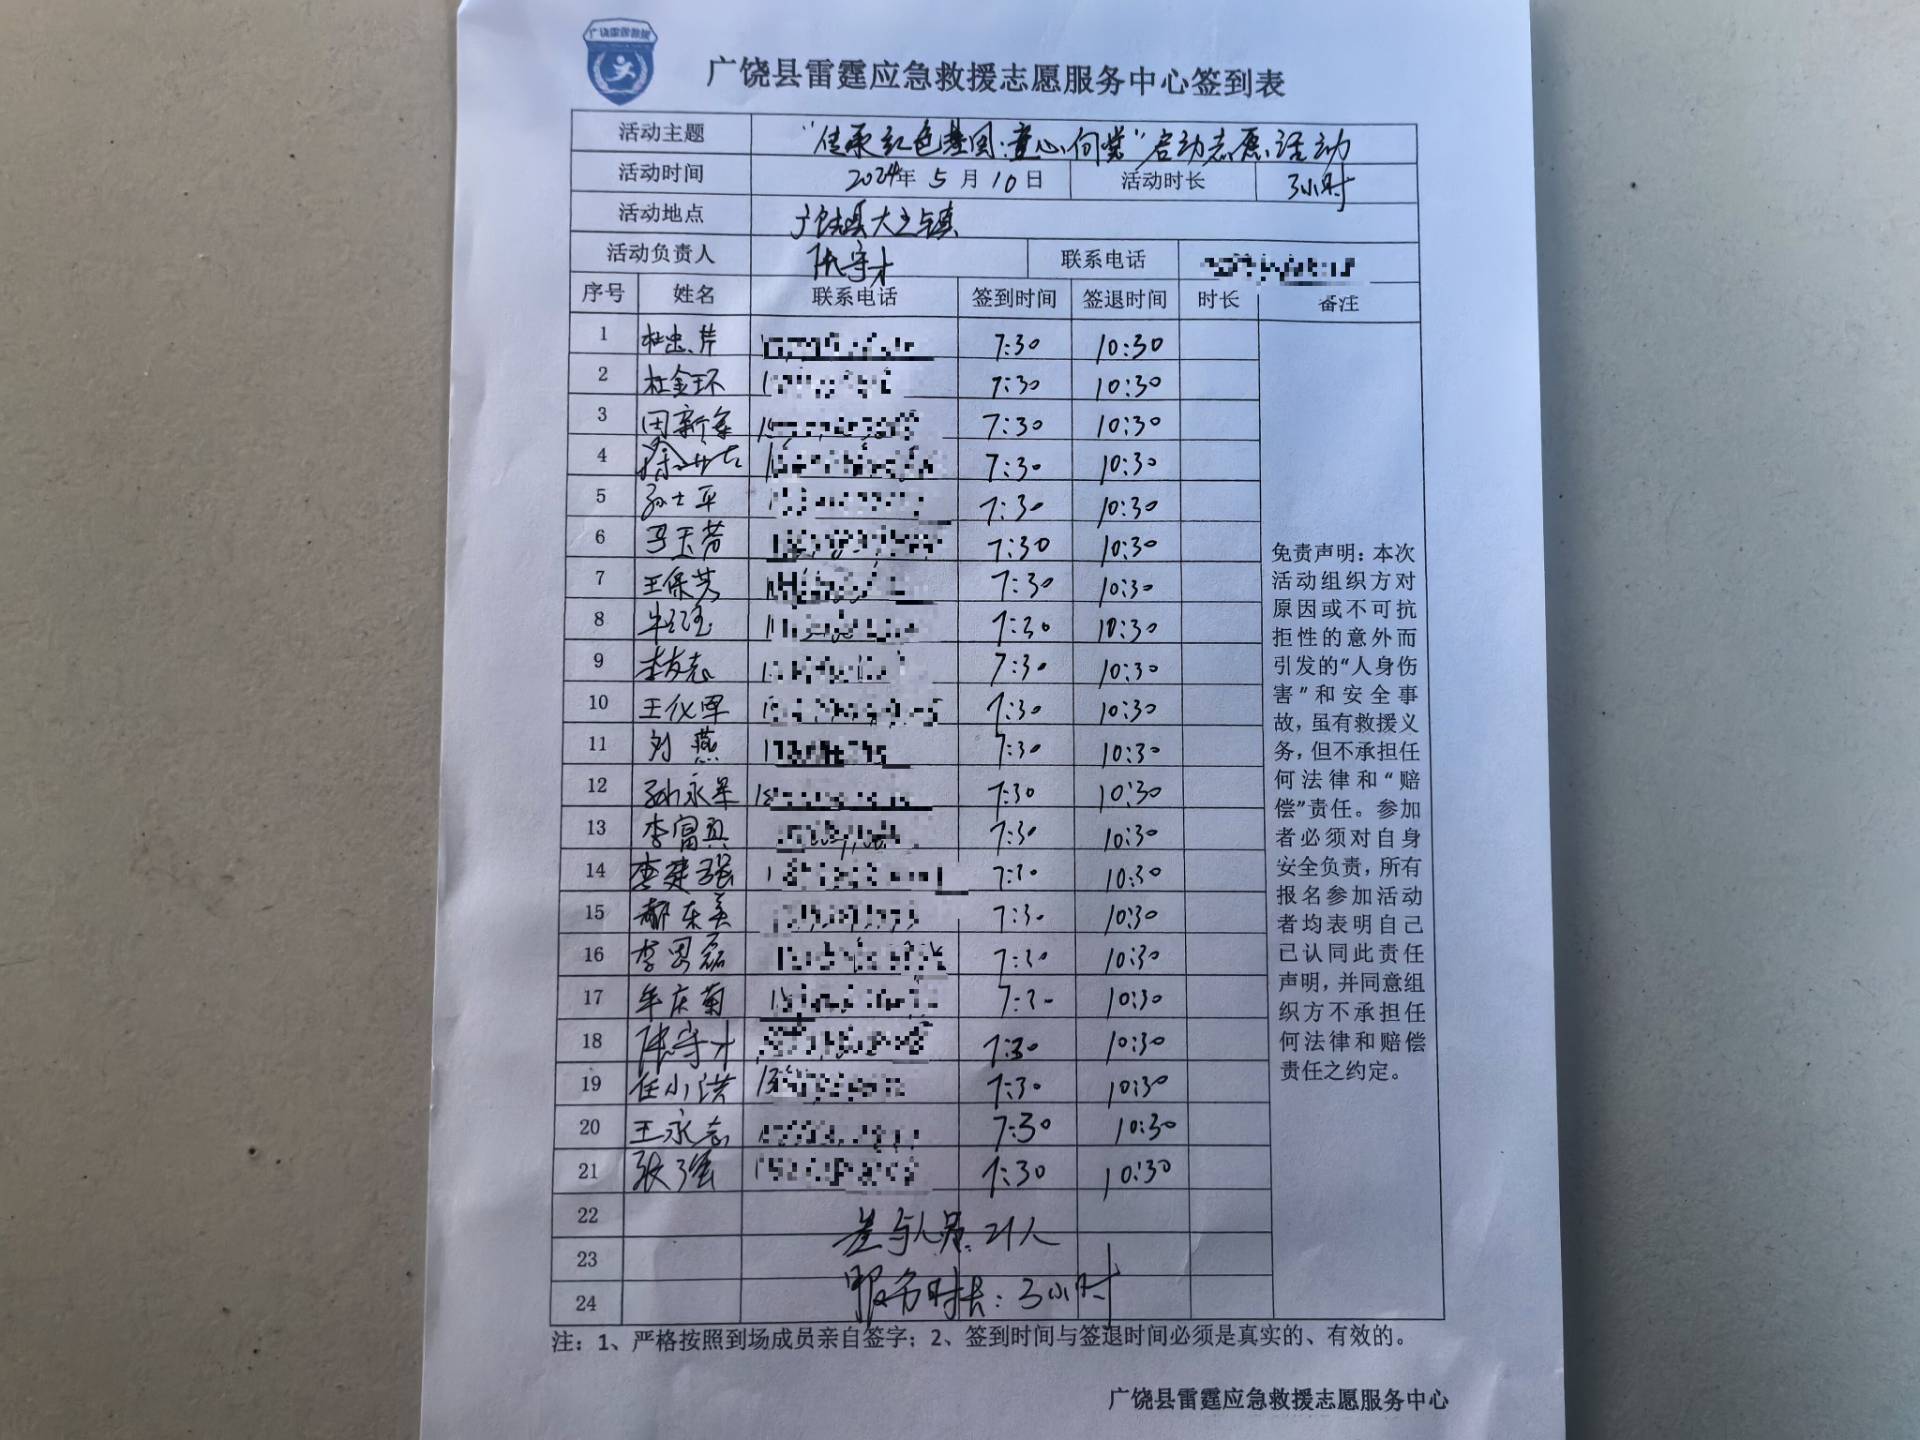 广饶雷霆救援
广饶县雷霆应急救援志愿服务中心签到表
活动主题 “传承红色基因·童心向党”启动志愿活动
活动时间 2024年 5 月 10 日 活动时长 3小时
活动地点 广饶县大王镇
活动负责人 张守才 联系电话
序号 姓名 联系电话 签到时间 签退时间 时长 备注
1 杜忠芹 7:30 10:30
2 杜金环 7:30 10:30
3 田新 7:30 10:30
4 徐 7:30 10:30
5 孙士平 7:30 10:30
6 马玉芳 7:30 10:30
7 王保芳 7:30 10:30
8 7:30 10:30
9 李友志 7:30 10:30
10 王仪军 7:30 10:30
11 刘燕 7:30 10:30
12 孙永果 7:30 10:30
13 李富 7:30 10:30
14 李建强 7:30 10:30
15 郝东美 7:30 10:30
16 李思磊 7:30 10:30
17 牟庆菊 7:30 10:30
18 张守才 7:30 10:30
19 任小洪 7:30 10:30
20 王永志 7:30 10:30
21 张强 7:30 10:30
22 参与人员:21人
23
24 服务时长:3小时
免责声明:本次
活动组织方对
原因或不可抗
拒性的意外而
引发的“人身伤
害”和安全事
故,虽有救援义
务,但不承担任
何法律和“赔
偿”责任。参加
者必须对自身
安全负责,所有
报名参加活动
者均表明自己
已认同此责任
声明,并同意组
织方不承担任
何法律和赔偿
责任之约定。
注:1、严格按照到场成员亲自签字;2、签到时间与签退时间必须是真实的、有效的。
广饶县雷霆应急救援志愿服务中心